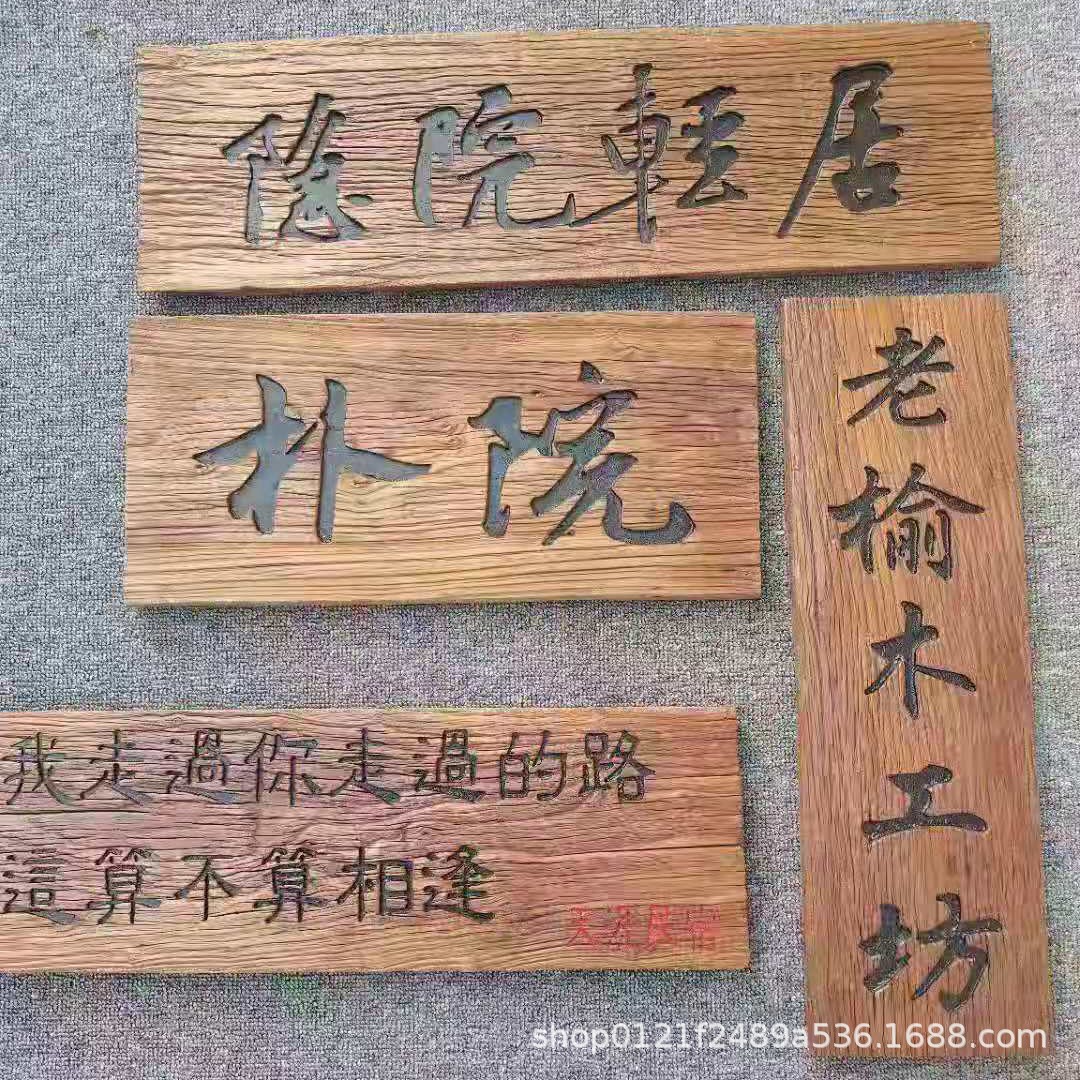 院輕居
朴院
老榆木工坊
我走過你走過的路
這算不算相逢
shop0121f2489a536.1688.com